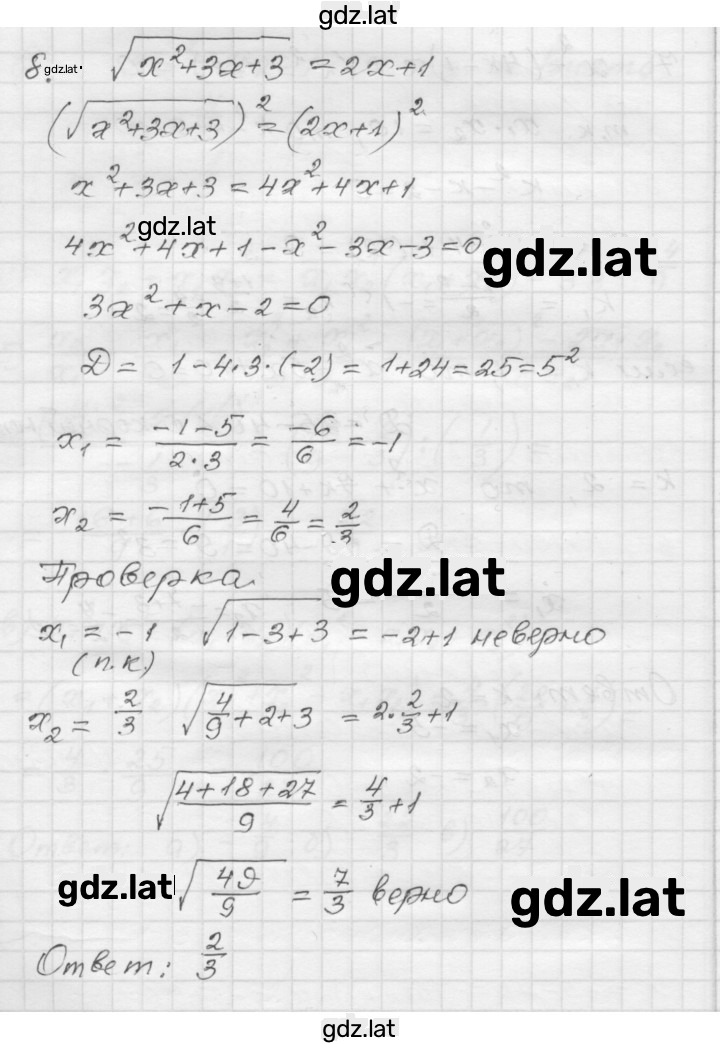 gdz.lat
8. gdz.lat √(x²+3x+3) = 2x+1
(√(x²+3x+3))² = (2x+1)²
x²+3x+3 = 4x²+4x+1
gdz.lat
4x²+4x+1-x²-3x-3=0
gdz.lat
3x²+x-2=0
D = 1-4·3·(-2) = 1+24=25=5²
x₁ = (-1-5)/(2·3) = -6/6 = -1
x₂ = (-1+5)/6 = 4/6 = 2/3
Проверка.
gdz.lat
x₁ = -1 √(1-3+3) = -2+1 неверно
(п.к)
x₂ = 2/3 √(4/9+2+3) = 2·2/3+1
√((4+18+27)/9) = 4/3+1
gdz.lat
√(49/9) = 7/3 верно
gdz.lat
Ответ: 2/3
gdz.lat